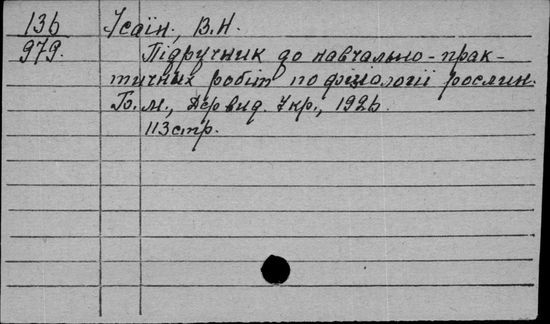 136
979.
Ісаїн, В.Н.
Підручник до навчально-прак-
тичних робіт по фізіології рослин.
Б.м., Держвид. Укр., 1926.
113 стр.